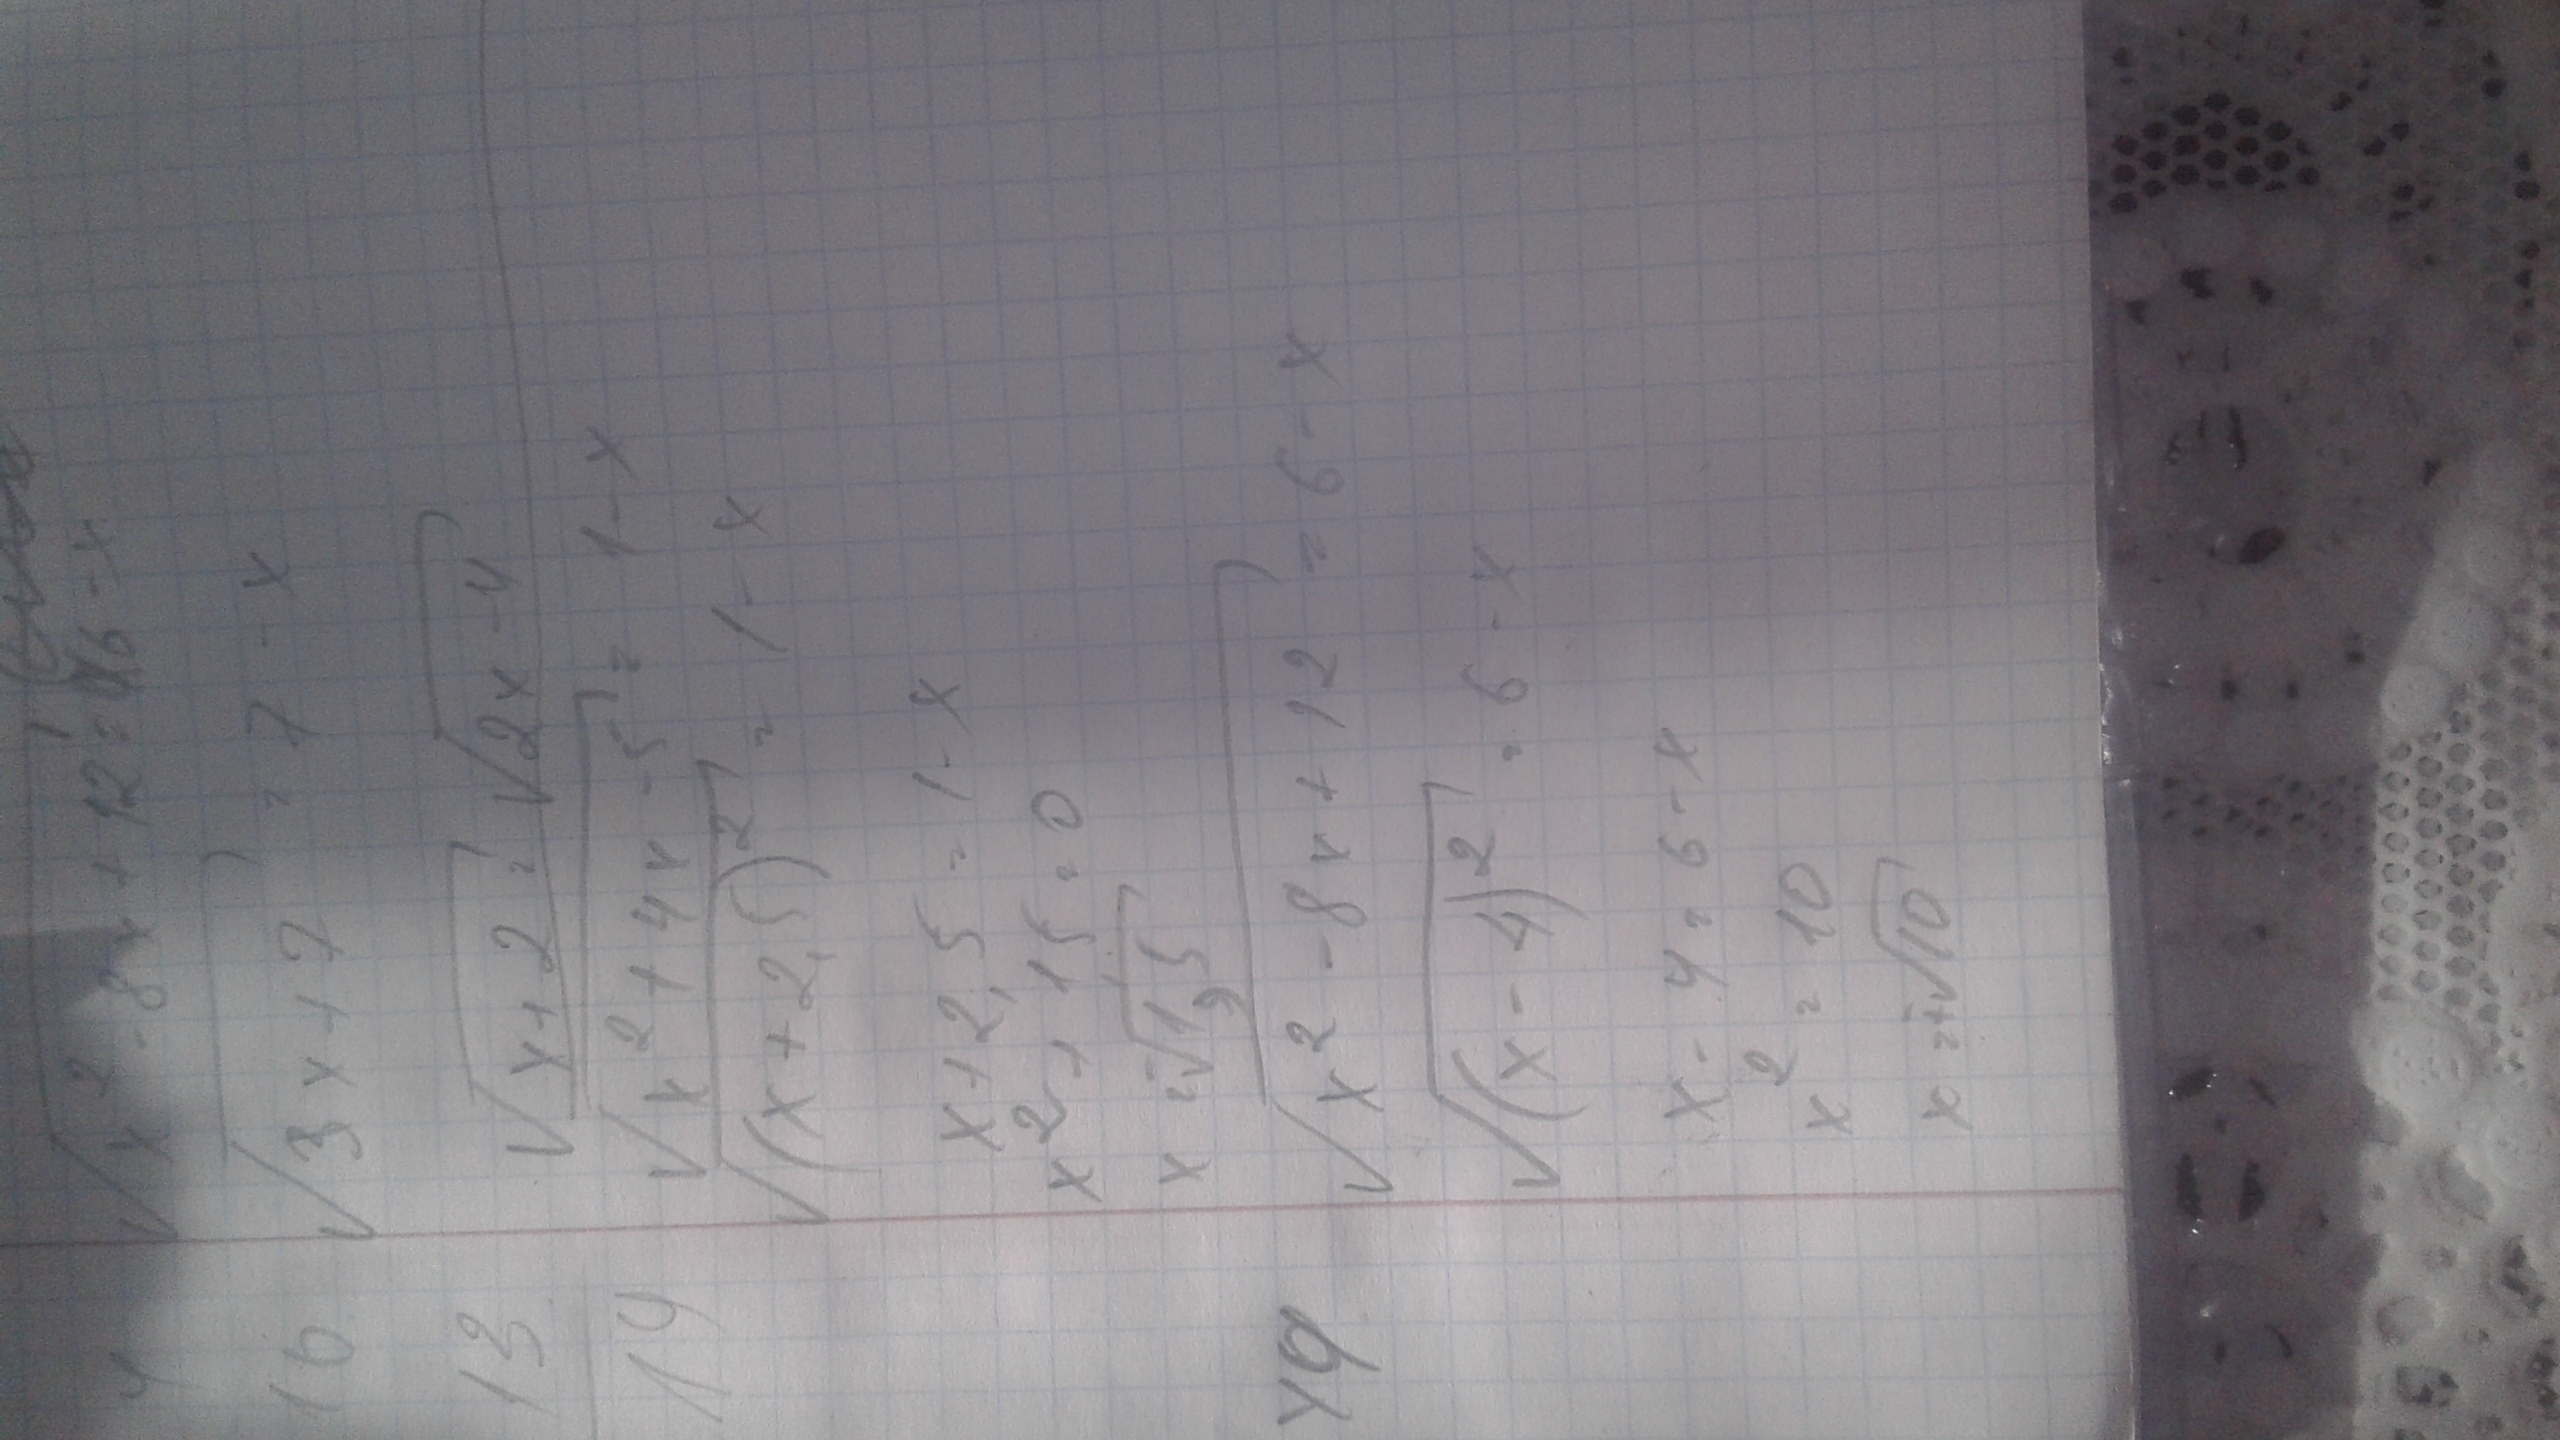 √x² - 8x + 12 = 6 - x
16 √3x + 7 = 7 - x
13 √x + 2 = √2x - 4
14 √x² + 4x - 5 = 1 - x
√(x + 2,5)² = 1 - x
x + 2,5 = 1 - x
x² + 1,5 = 0
x = √1,5
√x² - 8x + 12 = 6 - x
√(x - 4)² = 6 - x
x - 4 = 6 - x
x² = 10
x = ±√10